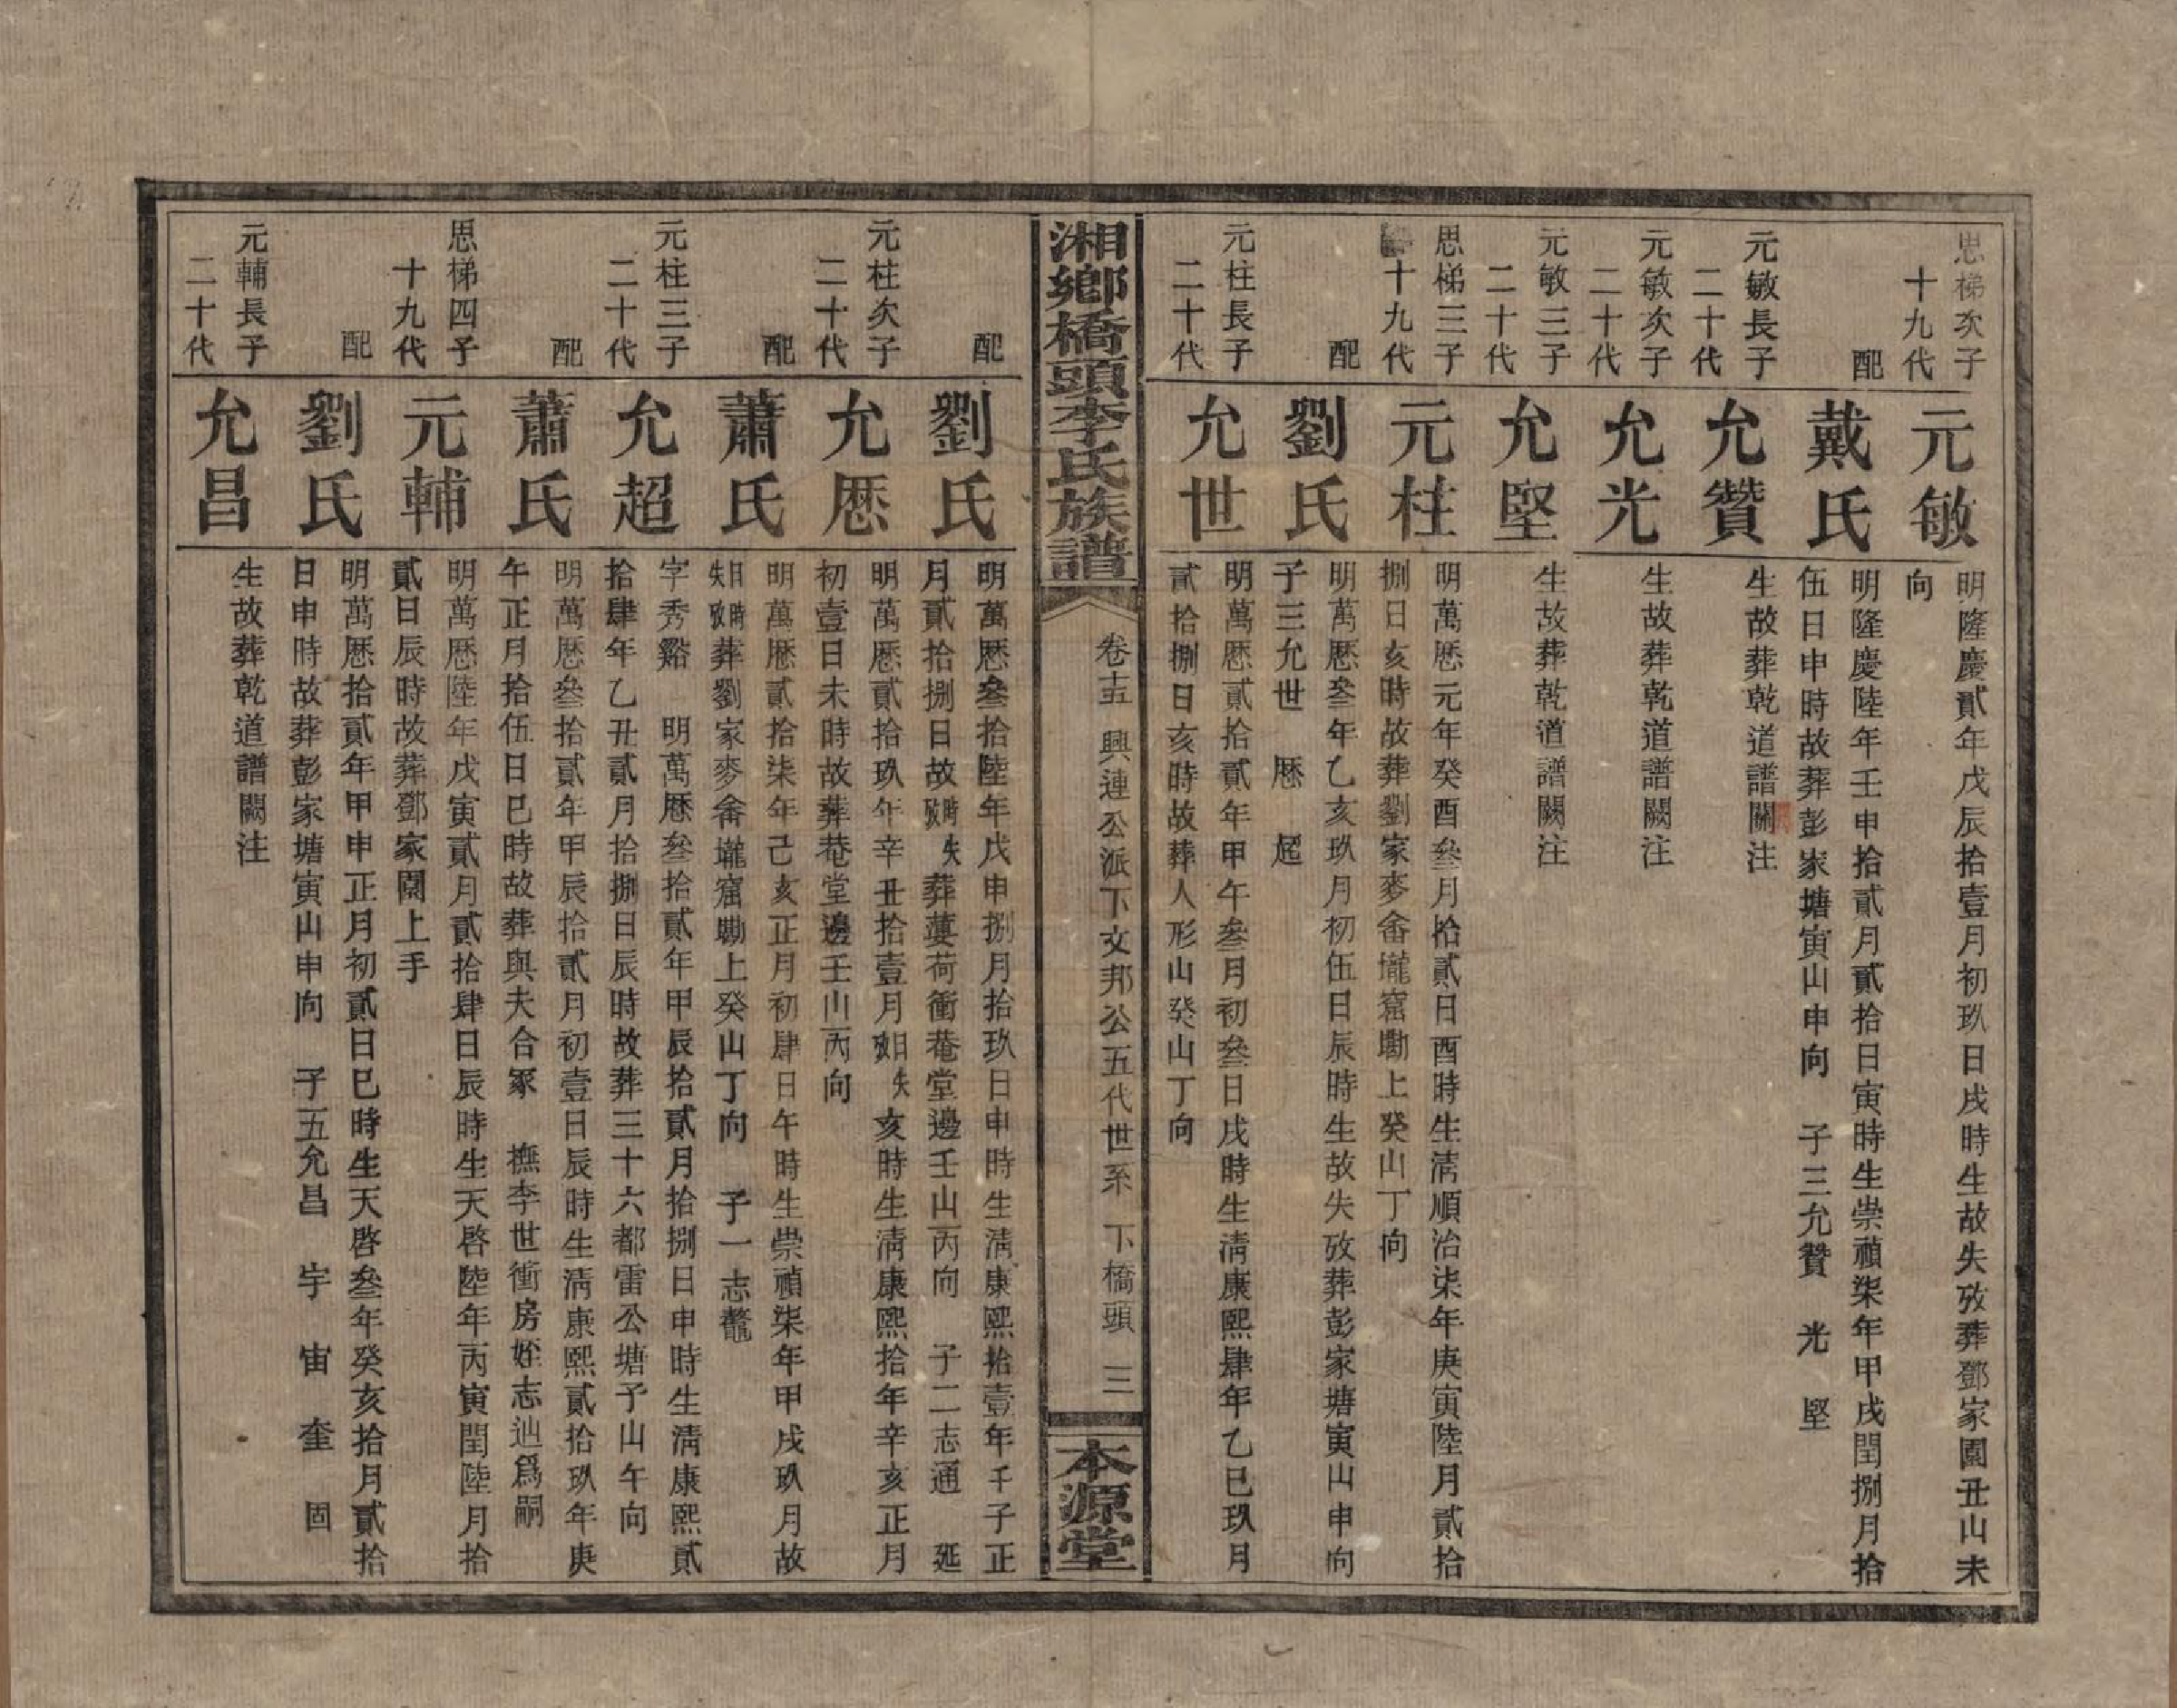 思梯次子
十九代
元敏
明隆慶貳年戊辰拾壹月初玖日戌時生故失攷葬鄧家園丑山未
向
配
戴氏
明隆慶陸年壬申拾貳月貳拾日寅時生崇禎柒年甲戌閏捌月拾
伍日申時故葬彭家塘寅山申向　子三允贊　光　堅
元敏長子
二十代
允贊
生故葬乾道譜闕注
元敏次子
二十代
允光
生故葬乾道譜闕注
元敏三子
二十代
允堅
生故葬乾道譜闕注
思梯三子
十九代
元柱
明萬厯元年癸酉叄月拾貳日酉時生清順治柒年庚寅陸月貳拾
捌日亥時故葬劉家麥畬壠窰勘上癸山丁向
配
劉氏
明萬厯叄年乙亥玖月初伍日辰時生故失攷葬彭家塘寅山申向
子三允世　厯　超
元柱長子
二十代
允世
明萬厯貳拾貳年甲午叄月初叄日戌時生清康熙肆年乙巳玖月
貳拾捌日亥時故葬人形山癸山丁向
湘鄉橋頭李氏族譜
卷十五　興連公派下文邦公五代世系　下橋頭　三
本源堂
配
劉氏
明萬厯叄拾陸年戊申捌月拾玖日申時生清康熙拾壹年壬子正
月貳拾捌日故時失攷葬蔞荷衝菴堂邊壬山丙向　子二志通　延
元柱次子
二十代
允厯
明萬厯貳拾玖年辛丑拾壹月日失攷亥時生清康熙拾年辛亥正月
初壹日未時故葬菴堂邊壬山丙向
配
蕭氏
明萬厯貳拾柒年己亥正月初肆日午時生崇禎柒年甲戌玖月故
日時失攷葬劉家麥畬壠窰勘上癸山丁向　子一志鼇
元柱三子
二十代
允超
字秀谿　明萬厯叄拾貳年甲辰拾貳月拾捌日申時生清康熙貳
拾肆年乙丑貳月拾捌日辰時故葬三十六都雷公塘子山午向
配
蕭氏
明萬厯叄拾貳年甲辰拾貳月初壹日辰時生清康熙貳拾玖年庚
午正月拾伍日巳時故葬與夫合冢　撫李世衝房姪志辿爲嗣
思梯四子
十九代
元輔
明萬厯陸年戊寅貳月貳拾肆日辰時生天啓陸年丙寅閏陸月拾
貳日辰時故葬鄧家園上手
配
劉氏
明萬厯拾貳年甲申正月初貳日巳時生天啓叄年癸亥拾月貳拾
日申時故葬彭家塘寅山申向　子五允昌　宇　宙　奎　固
元輔長子
二十代
允昌
生故葬乾道譜闕注